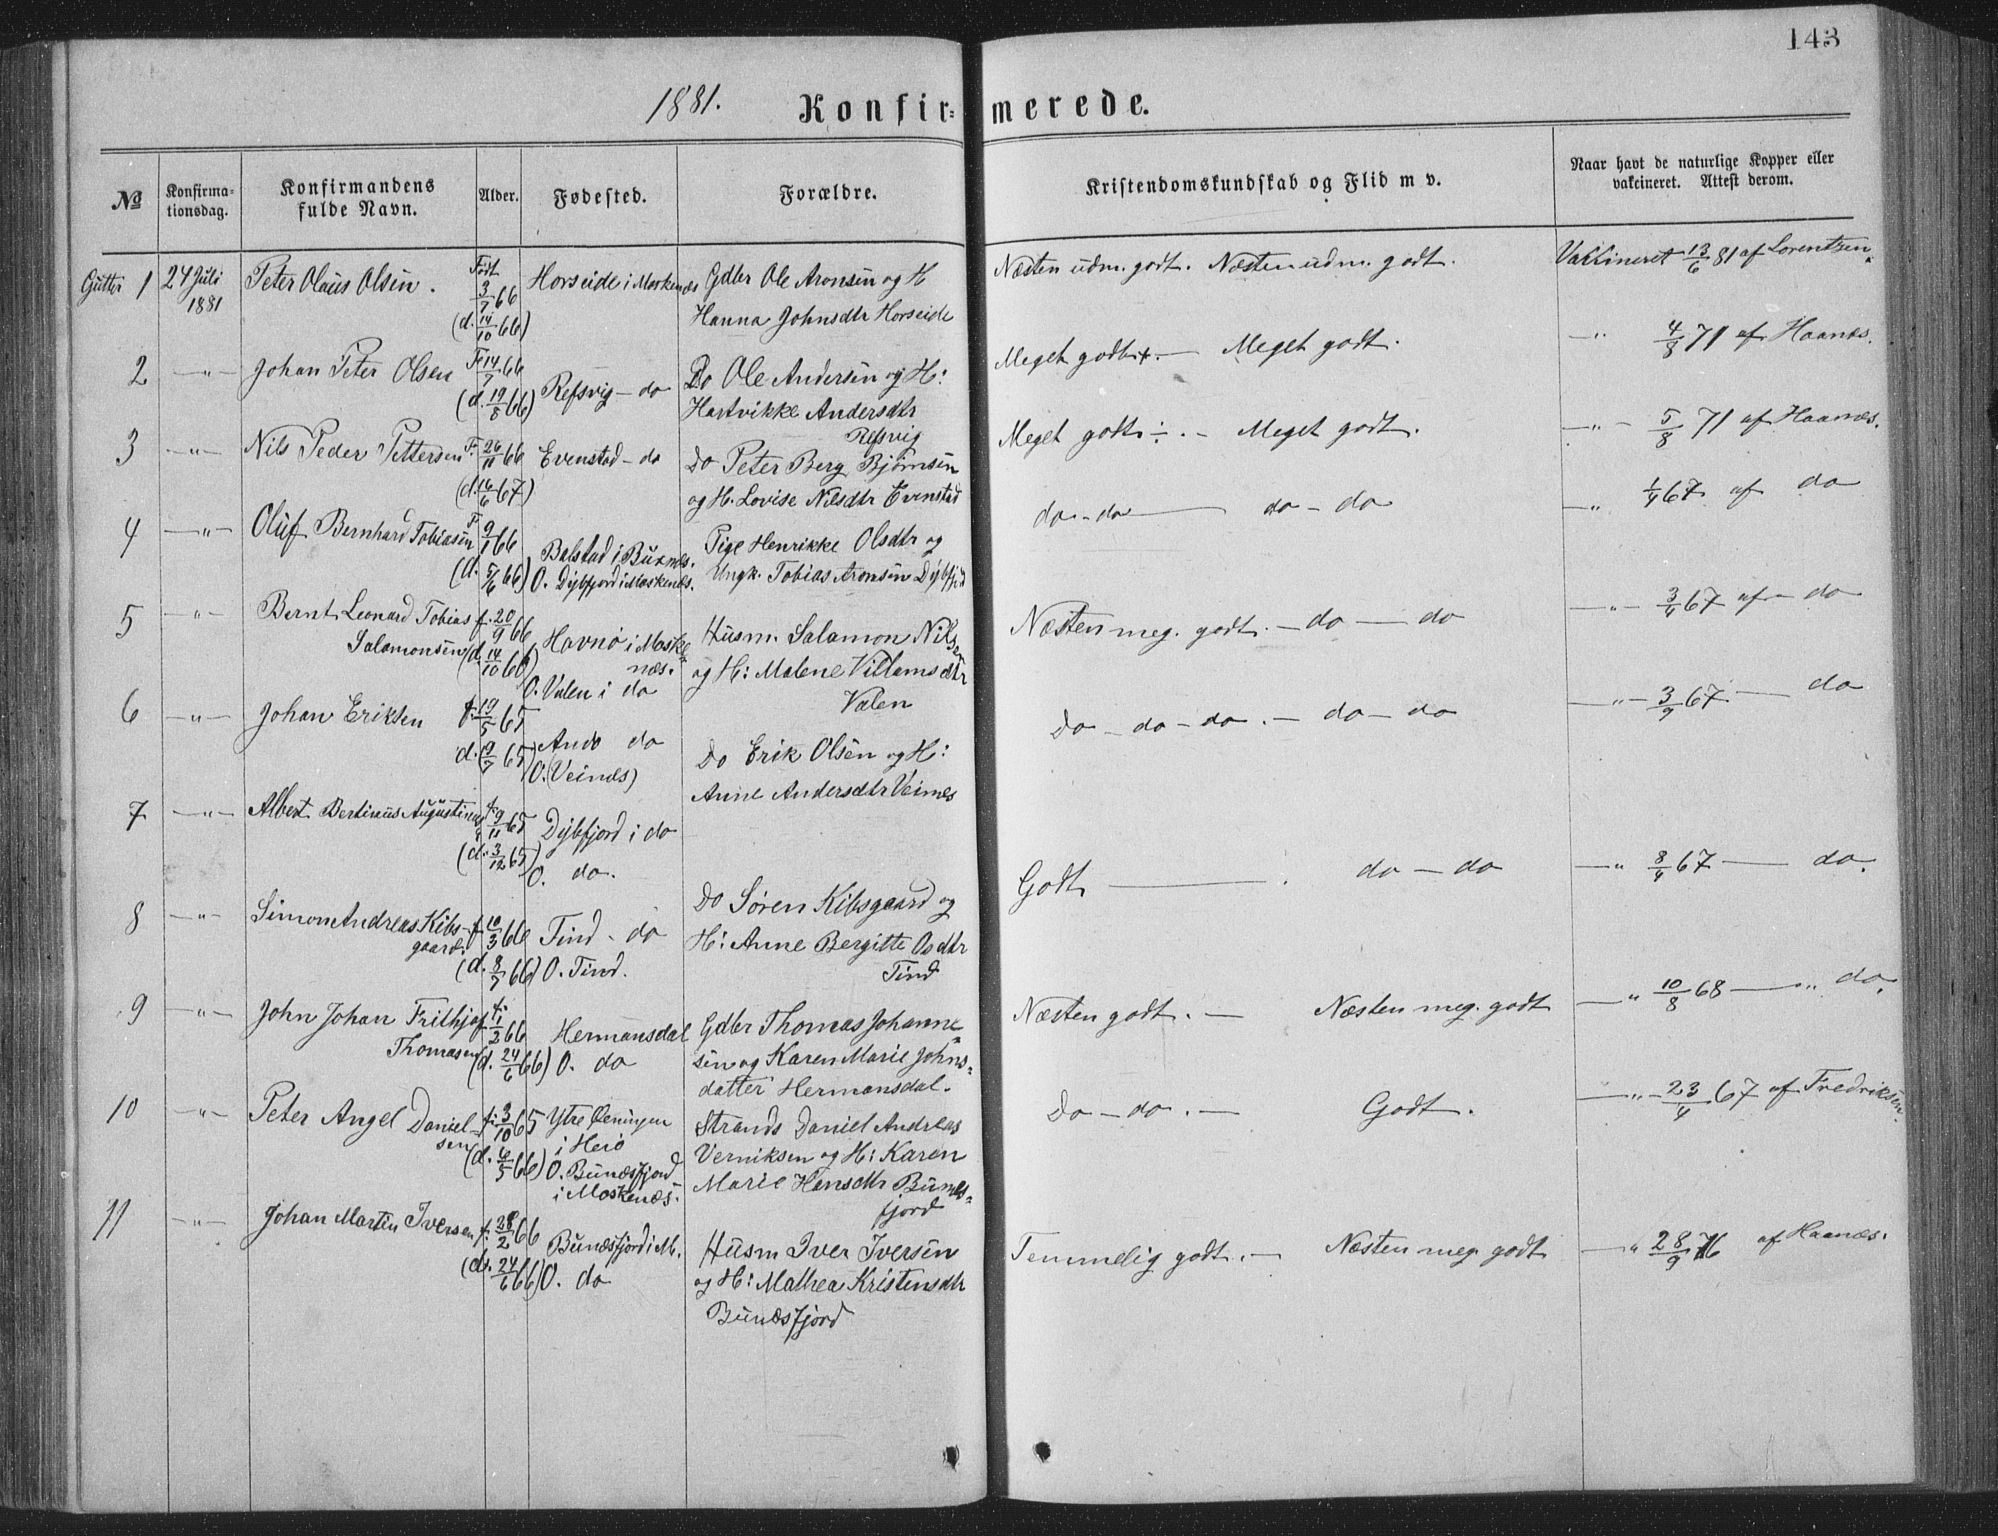 143
1881. Konfir= merede.
№ Konfirma-tionsdag. Konfirmandens fulde Navn. Alder. Fødested. Forældre. Kristendomskundskab og Flid m v. Naar havt de naturlige Kopper eller vakcineret. Attest derom.
Gutter 1 24 Juli Peter Olaus Olsen. Født 3/7 66 Horseide i Moskenæs Gdbr Ole Aronsen og H Næsten udm. godt. Næsten udm. godt. Vakcineret 13/6 81 af Lorentzen.
1881 (d. 14/10 66) Hanna Johnsdtr Horseide
2 —"— Johan Peter Olsen F. 14/7 66 Refsvig — do Do Ole Andersen og H: Meget godt+. — Meget godt. —" 4/8 71 af Haanæs.
(d. 19/8 66) Hartvikke Andersdtr
Refsvig
3 —"— Nils Peder Pettersen F. 26/11 66 Evenstad — do Do Peter Berg Bjørnsen Meget godt ÷. — Meget godt. —"— 5/8 71 af Haanæs.
(d. 16/6 67) og H. Lovise Nilsdtr Evenstad
4 —"— Oluf Bernhard Tobiasen F. 9/1 66 Balstad i Buxnæs. Pige Henrikke Olsdtr og do — do — do — do —" 67 af do
(d. 5/6 66) O. Dybfjord i Moskenæs. Ungk. Tobias Aronsen Dybfjord
5 —"— Bernt Leonard Tobias f. 20/9 66 Havnø i Moske- Husm. Salamon Nilsen Næsten meg. godt. — do — do —"— 67 af — do
Salamonsen (d. 14/10 66) næs. og H: Malene Villamsdtr
O. Valen i do Valen
6 —"— Johan Eriksen f. 19/5 65 Andø do Do Erik Olsen og H: Do — do — do. — do — do —"— 67 — do
d. 65) O. (Veinæs) Anne Andersdtr Veinæs
7 —"— Albert Bertinius Augustinus f. 9/11 65 Dybfjord i do Godt — . do — do —" 67 — do.
(d. 3/12 65) O. do.
8 —"— Simon Andreas Kibs- f. 10/3 66 Tind — do Do Søren Kibsgaard og Næsten godt. — Næsten meg. godt —" 10/8 68 —" do.
gaard. (d. 8/7 66) O. Tind. H: Anne Bergitte Osdtr
Tind
9 —"— John Johan Frithjof f. 1/2 66 Hermansdal Gdbr Thomas Johanne- Do — do. — Godt. —"— 23/4 67 af Fredriksen.
Thomasen (d. 24/6 66) O. do sen og Karen Marie Johns-
datter Hermansdal.
10 —"— Peter Angel Daniel- f. 3/10 65 Ytre i Herø Strands Daniel Andreas Temmelig godt. — Næsten meg. godt —" 28/9 76 af Haanæs.
sen (d. 6/5 66) O. Bunæsfjord i Moskenæs. Verniksen og H: Karen
Marie Hansdtr Bunæs-
fjord
11 —"— Johan Martin Iversen f. 28/2 66 Bunæsfjord i M. Husm Iver Iversen
(d. 24/6 66) O. do og H: Mathea Kristensdtr
Bunæsfjord